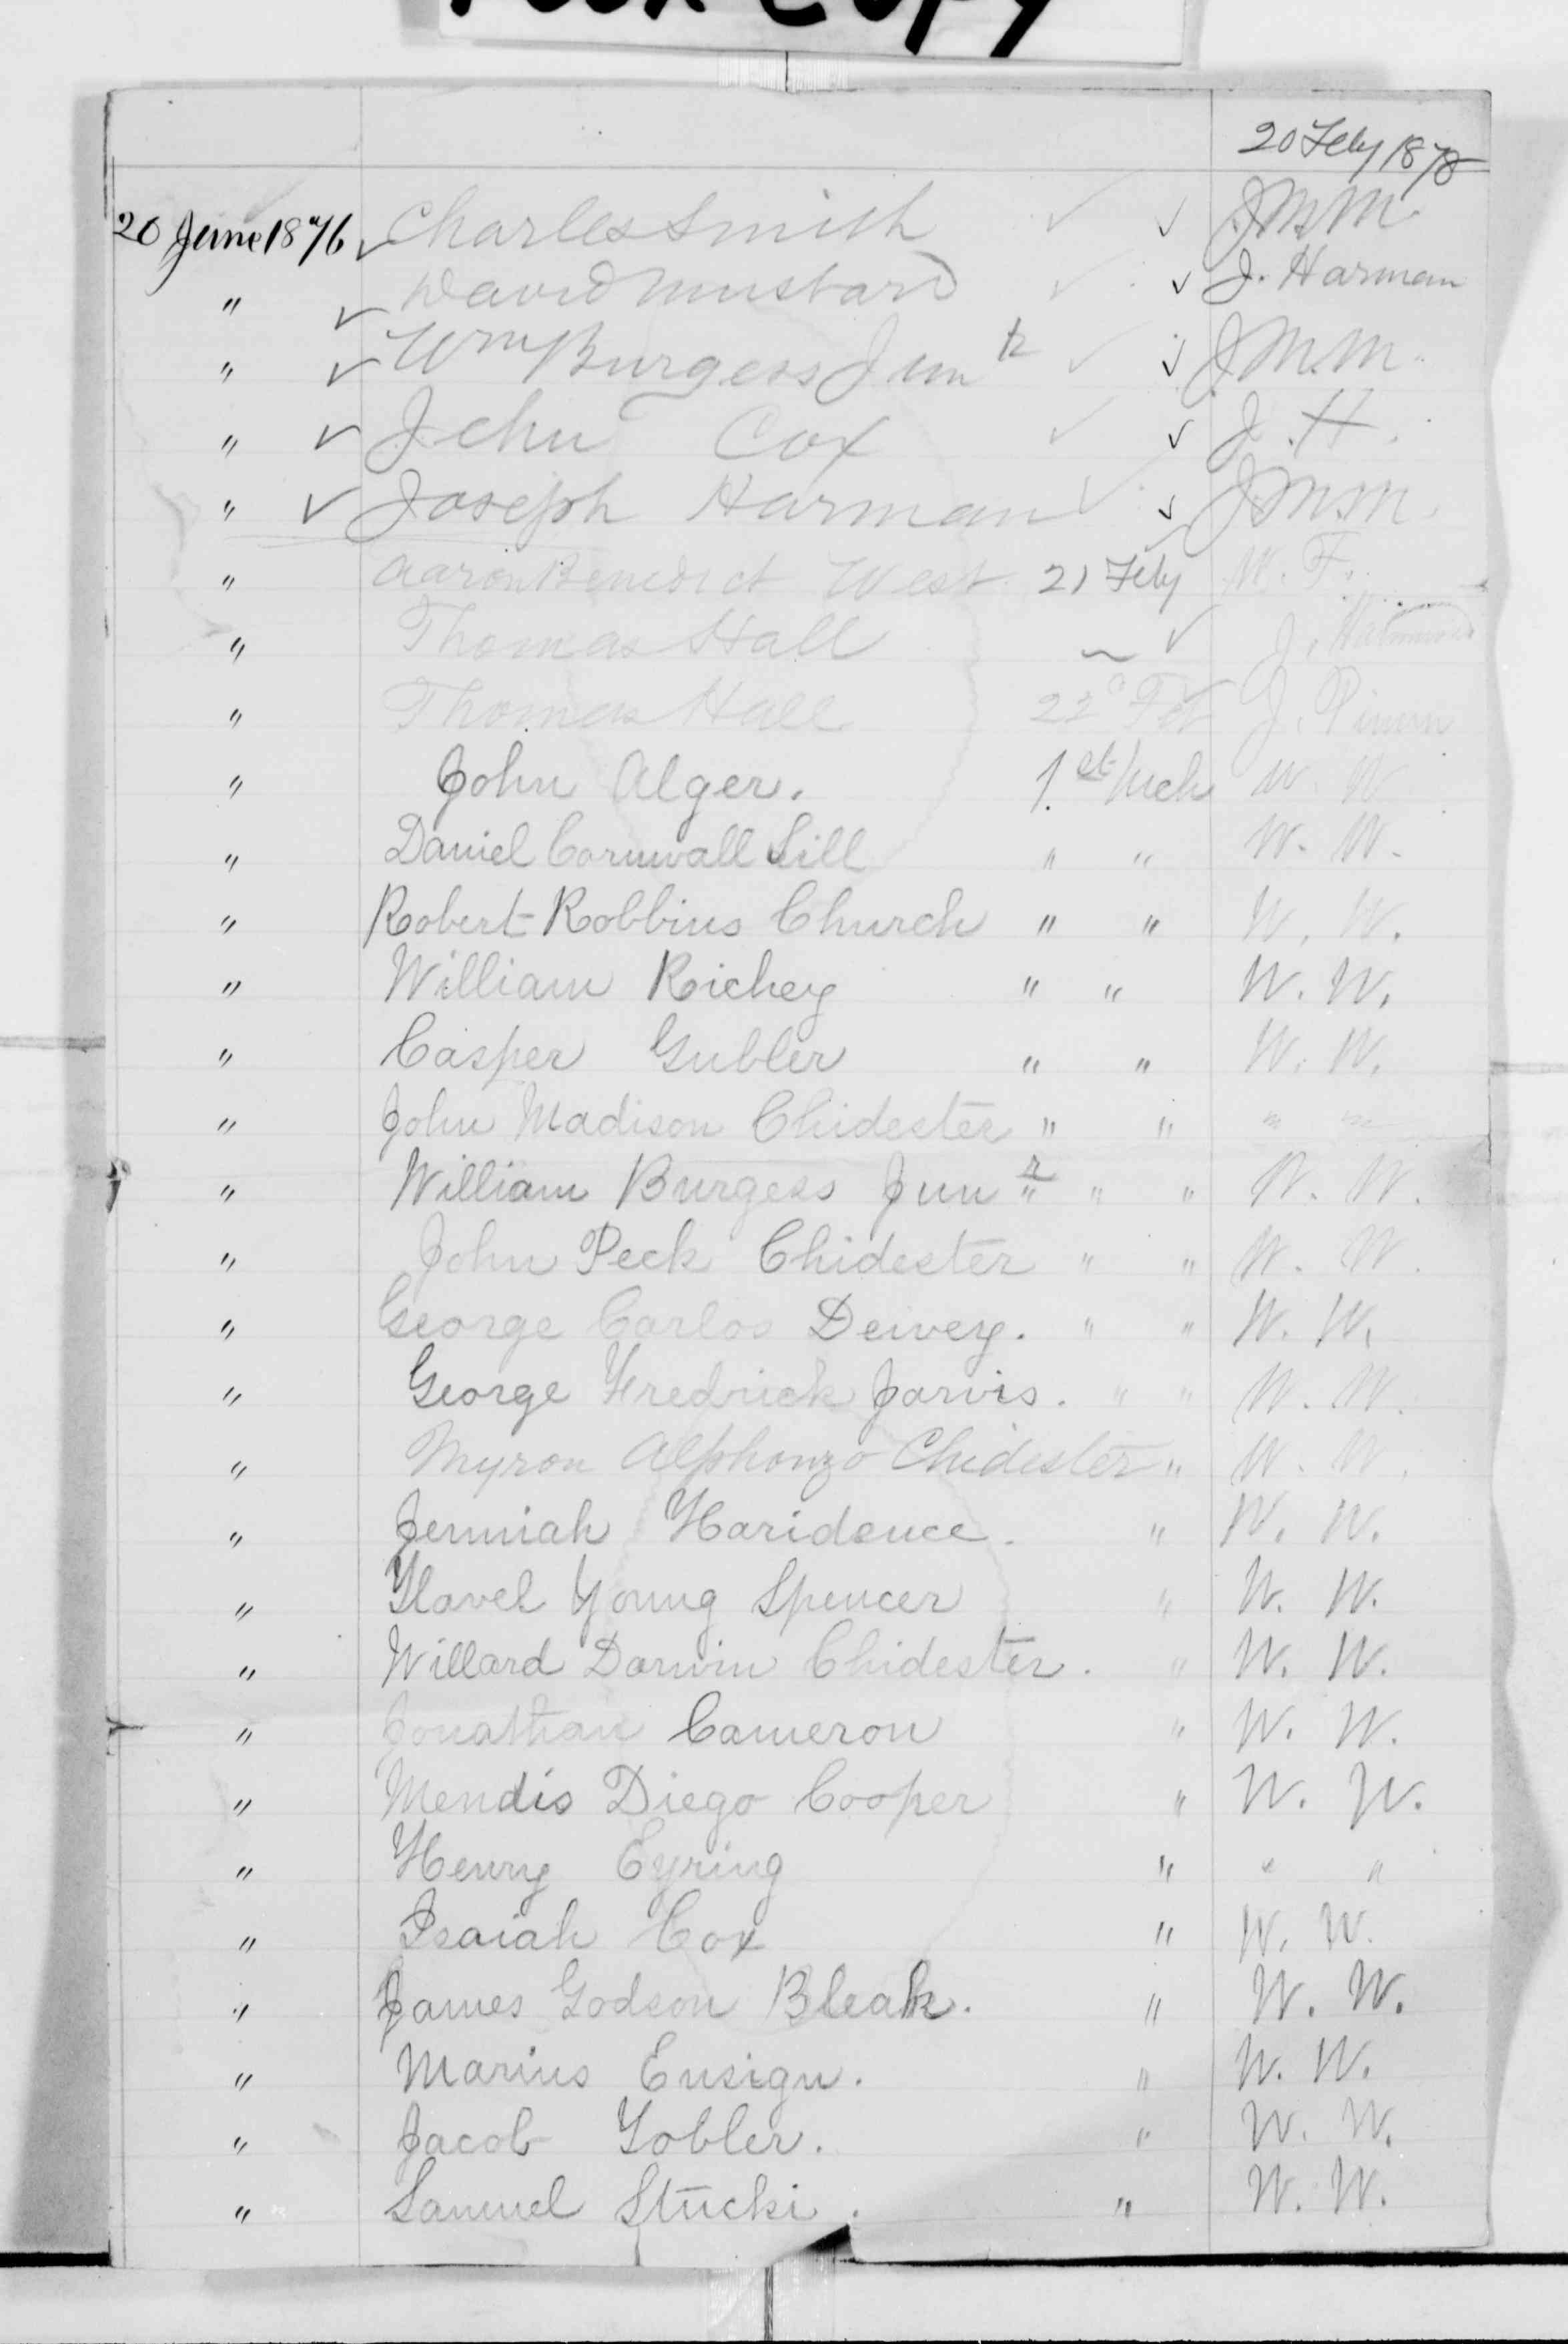 Copy
20 Feby 1878
20 June 1876 ✓ Charles Smith ✓ ✓ J M M.
" ✓ David Mustard ✓ ✓ J. Harman
" ✓ Wm Burgess Junr ✓ ✓ J M. M.
" ✓ Jehu Cox ✓ ✓ J. H.
" ✓ Joseph Harman ✓ ✓ J M. M.
" Aaron Benedict West 21 Feby W. F.
" Thomas Hall ✓ J.
" Thomas Hall 22d Feb J.
" John Alger. 1st Mch W. W
" Daniel Cornwall Sill " " W. W.
" Robert Robbins Church " " W. W.
" William Richey " " W. W.
" Casper Gubler " " W. W.
" John Madison Chidester " " " "
" William Burgess Junr " " " W. W.
" John Peck Chidester " " W. W.
" George Carlos Dewey. " " W. W.
" George Fredrick Jarvis. " " W. W.
" Myron Alphonzo Chidester " W. W.
" W. W.
" Flavel Young Spencer " W. W.
" Willard Darwin Chidester. " W. W.
" Jonathan Cameron " W. W.
" Mendis Diego Cooper " W. W.
" Henry Eyring " " "
" Isaiah Cox " W. W.
" James Godson Bleak. " W. W.
" Marius Ensign. " W. W.
" Jacob Tobler. " W. W.
" Samuel Stucki. " W. W.